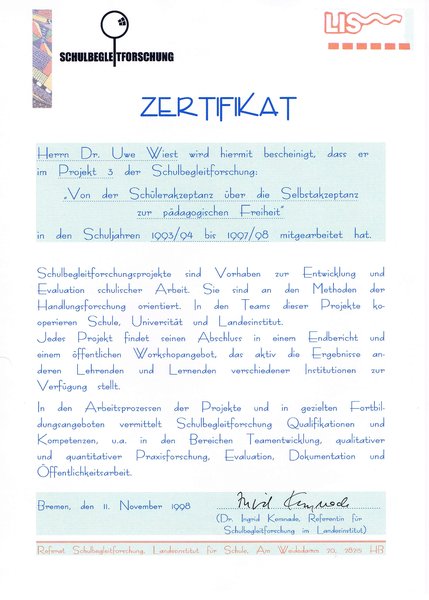 SCHULBEGLEITFORSCHUNG
LIS
ZERTIFIKAT
Herrn Dr. Uwe Wiest wird hiermit bescheinigt, dass er
im Projekt 3 der Schulbegleitforschung:
„Von der Schülerakzeptanz über die Selbstakzeptanz
zur pädagogischen Freiheit"
in den Schuljahren 1993/94 bis 1997/98 mitgearbeitet hat.
Schulbegleitforschungsprojekte sind Vorhaben zur Entwicklung und
Evaluation schulischer Arbeit. Sie sind an den Methoden der
Handlungsforschung orientiert. In den Teams dieser Projekte ko-
operieren Schule, Universität und Landesinstitut.
Jedes Projekt findet seinen Abschluss in einem Endbericht und
einem öffentlichen Workshopangebot, das aktiv die Ergebnisse an-
deren Lehrenden und Lernenden verschiedener Institutionen zur
Verfügung stellt.
In den Arbeitsprozessen der Projekte und in gezielten Fortbil-
dungsangeboten vermittelt Schulbegleitforschung Qualifikationen und
Kompetenzen, u.a. in den Bereichen Teamentwicklung, qualitativer
und quantitativer Praxisforschung, Evaluation, Dokumentation und
Öffentlichkeitsarbeit.
Bremen, den 11. November 1998
(Dr. Ingrid Kemnade, Referentin für
Schulbegleitforschung im Landesinstitut)
Referat Schulbegleitforschung, Landesinstitut für Schule, Am Weidedamm 20, 2825 HB